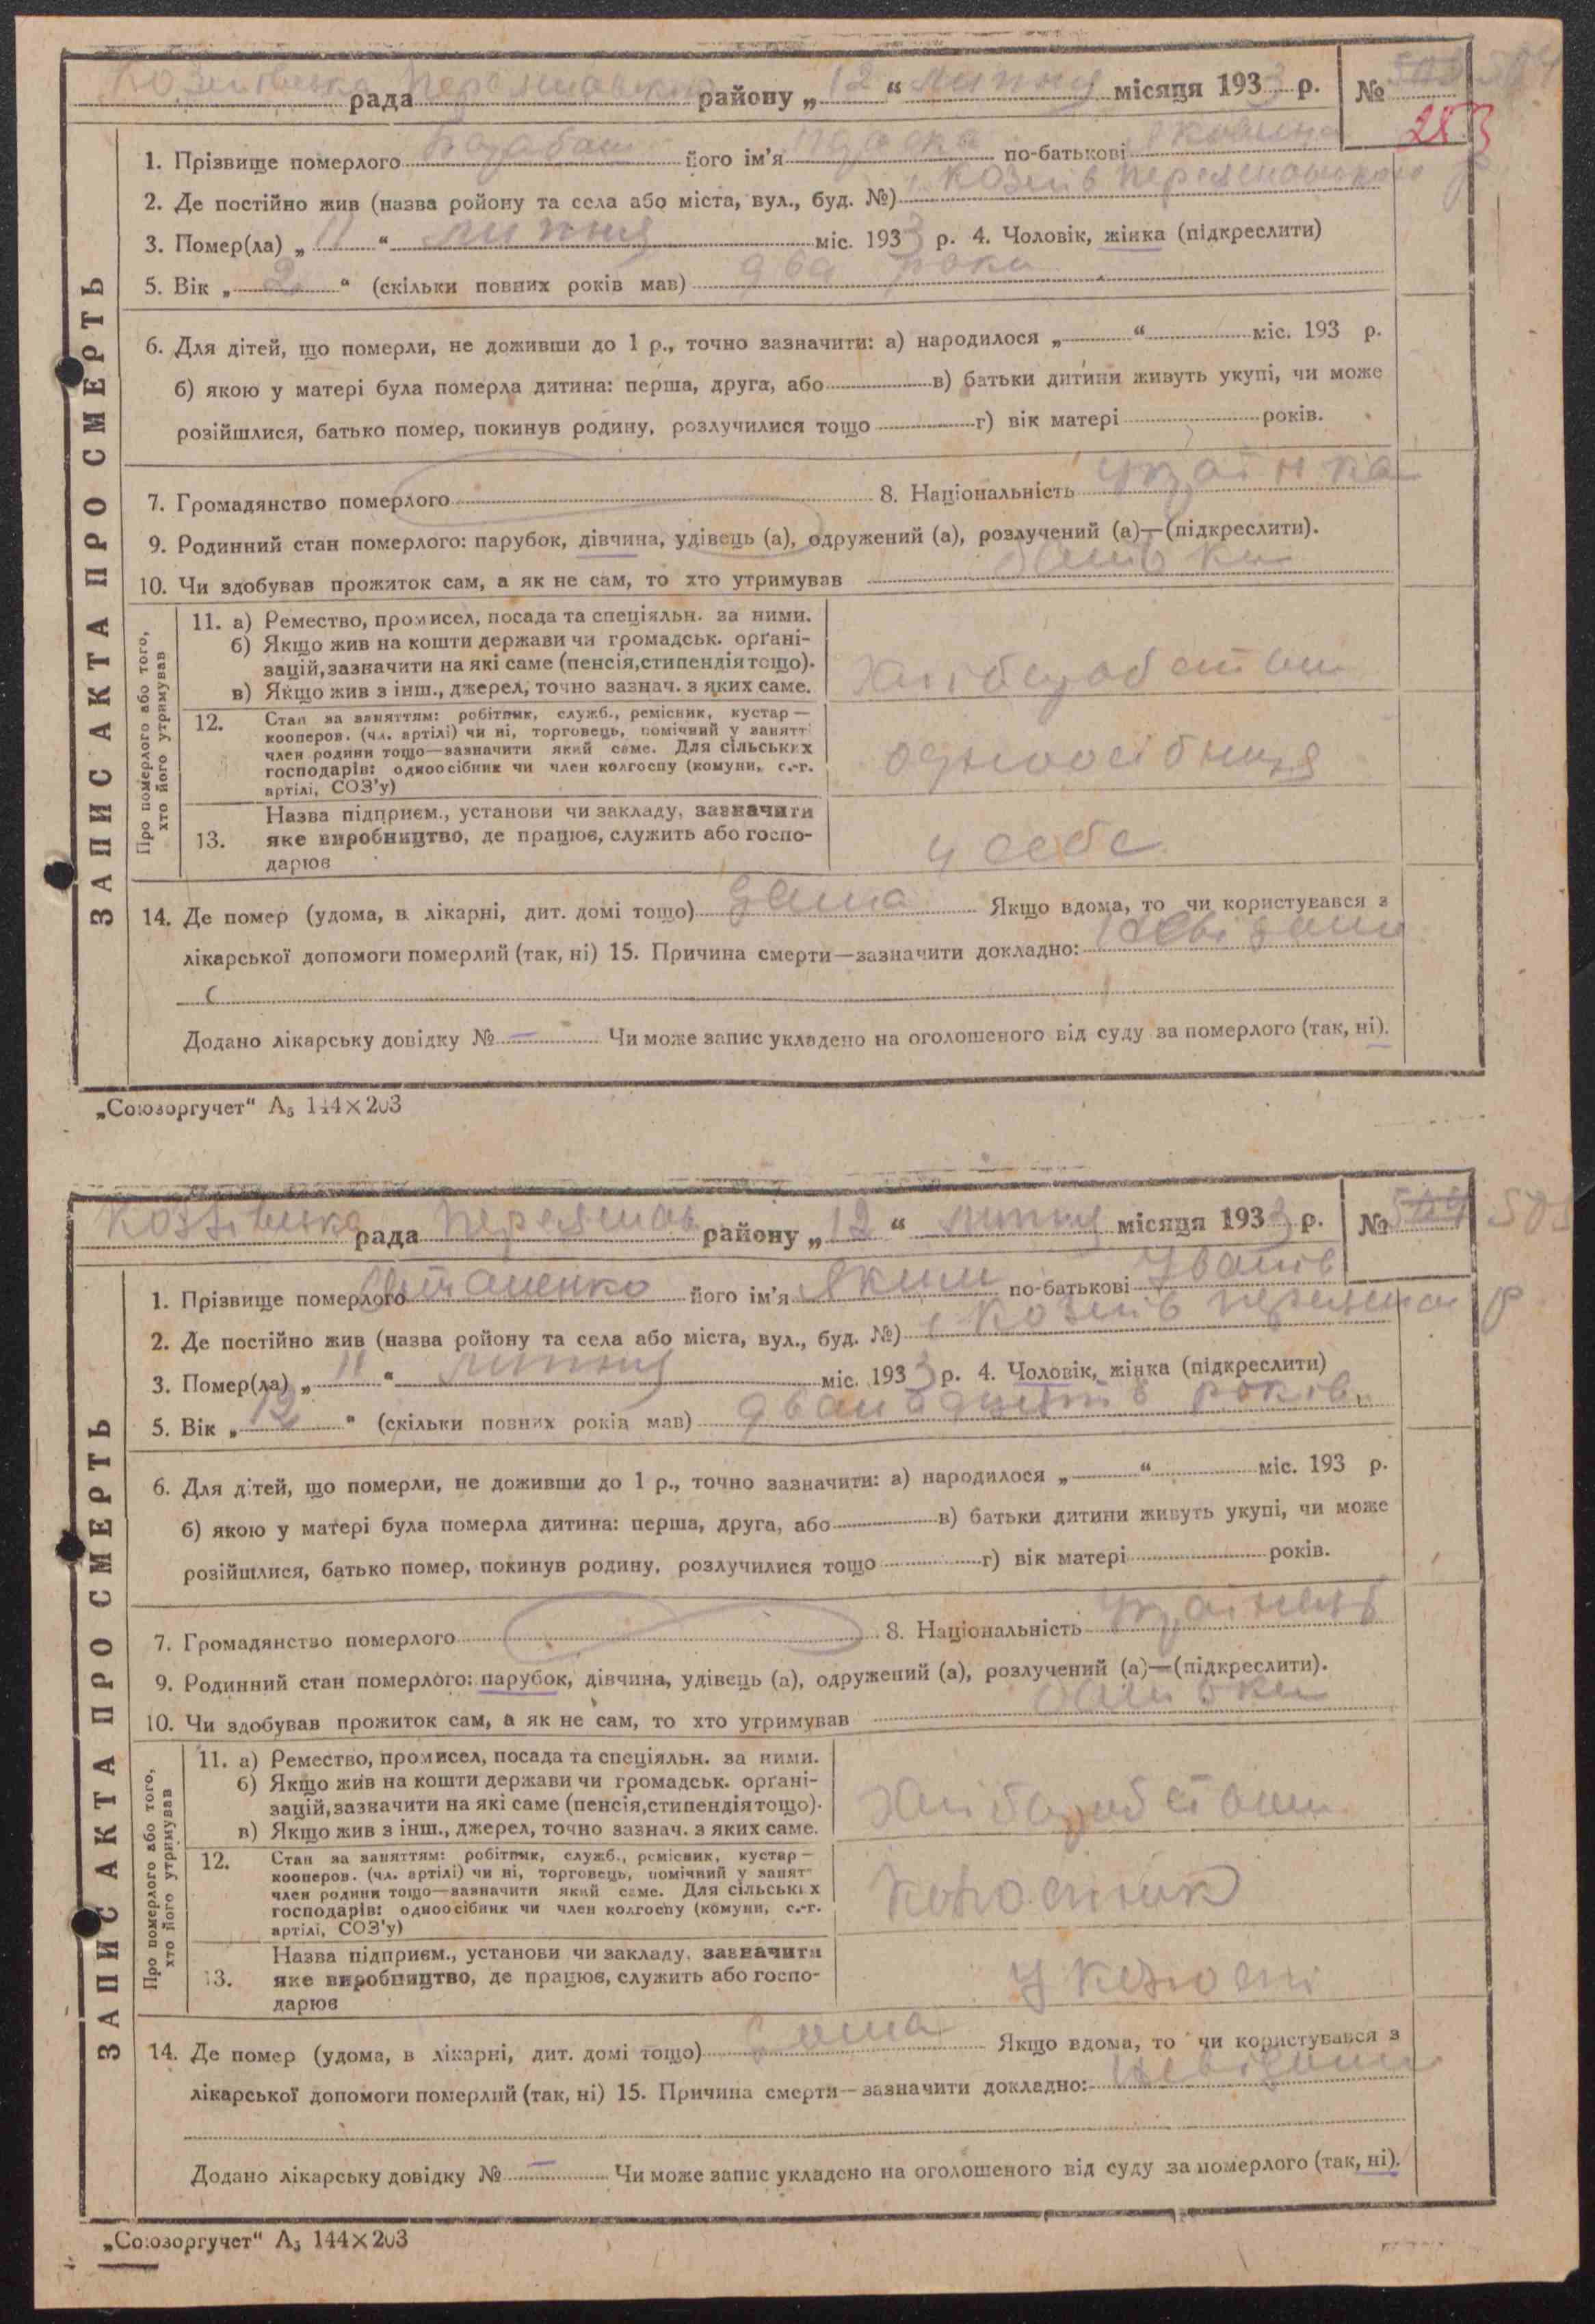 Козлівська рада Переяславськ району „12“ липня місяця 1933 р. № 503 504
283
1. Прізвище померлого його ім’я по-батькові
2. Де постійно жив (назва ройону та села або міста, вул., буд. №) с. Козлів Переяславського р
3. Помер(ла) „11“ липня міс. 1933 р. 4. Чоловік, жінка (підкреслити)
5. Вік „2“ (скільки повних років мав) два роки
6. Для дітей, що померли, не доживши до 1 р., точно зазначити: а) народилося „ “ міс. 193 р.
б) якою у матері була померла дитина: перша, друга, або в) батьки дитини живуть укупі, чи може
розійшлися, батько помер, покинув родину, розлучилися тощо г) вік матері років.
7. Громадянство померлого 8. Національність українка
9. Родинний стан померлого: парубок, дівчина, удівець (а), одружений (а), розлучений (а)—(підкреслити).
10. Чи здобував прожиток сам, а як не сам, то хто утримував батьки
Про померлого або того, хто його утримував
11. а) Ремество, промисел, посада та спеціяльн. за ними.
б) Якщо жив на кошти держави чи громадськ. орґані-
зацій, зазначити на які саме (пенсія, стипендія тощо).
в) Якщо жив з інш., джерел, точно зазнач. з яких саме.
хліборобством
12. Стан за заняттям: робітник, служб., ремісник, кустар—
кооперов. (чл. артілі) чи ні, торговець, помічний у занятт
член родини тощо—зазначити який саме. Для сільських
господарів: одноосібник чи член колгоспу (комуни, с.-г.
артілі, СОЗ’у)
одноосібниця
13. Назва підприєм., установи чи закладу, зазначити
яке виробництво, де працює, служить або госпо-
дарює
у себе
14. Де помер (удома, в лікарні, дит. домі тощо) дома Якщо вдома, то чи користувався з
лікарської допомоги померлий (так, ні) 15. Причина смерти—зазначити докладно: невідом
Додано лікарську довідку № — Чи може запис укладено на оголошеного від суду за померлого (так, ні).
ЗАПИС АКТА ПРО СМЕРТЬ
„Союзоргучет“ А5 144×203
Козлівська рада Переяслав району „12“ липня місяця 1933 р. № 504 505
1. Прізвище померлого його ім’я Яким по-батькові Іванів
2. Де постійно жив (назва ройону та села або міста, вул., буд. №) с Козлів Переяслав р
3. Помер(ла) „11“ липня міс. 1933 р. 4. Чоловік, жінка (підкреслити)
5. Вік „12“ (скільки повних років мав) дванадцять років
6. Для дітей, що померли, не доживши до 1 р., точно зазначити: а) народилося „ “ міс. 193 р.
б) якою у матері була померла дитина: перша, друга, або в) батьки дитини живуть укупі, чи може
розійшлися, батько помер, покинув родину, розлучилися тощо г) вік матері років.
7. Громадянство померлого 8. Національність українець
9. Родинний стан померлого: парубок, дівчина, удівець (а), одружений (а), розлучений (а)—(підкреслити).
10. Чи здобував прожиток сам, а як не сам, то хто утримував батьки
Про померлого або того, хто його утримував
11. а) Ремество, промисел, посада та спеціяльн. за ними.
б) Якщо жив на кошти держави чи громадськ. орґані-
зацій, зазначити на які саме (пенсія, стипендія тощо).
в) Якщо жив з інш., джерел, точно зазнач. з яких саме.
хліборобством
12. Стан за заняттям: робітник, служб., ремісник, кустар—
кооперов. (чл. артілі) чи ні, торговець, помічний у занят
член родини тощо—зазначити який саме. Для сільських
господарів: одноосібник чи член колгоспу (комуни, с.-г.
артілі, СОЗ’у)
колгоспник
13. Назва підприєм., установи чи закладу, зазначити
яке виробництво, де працює, служить або госпо-
дарює
у колгоспі
14. Де помер (удома, в лікарні, дит. домі тощо) дома Якщо вдома, то чи користувався з
лікарської допомоги померлий (так, ні) 15. Причина смерти—зазначити докладно: невідом
Додано лікарську довідку № — Чи може запис укладено на оголошеного від суду за померлого (так, ні).
ЗАПИС АКТА ПРО СМЕРТЬ
„Союзоргучет“ А5 144×203